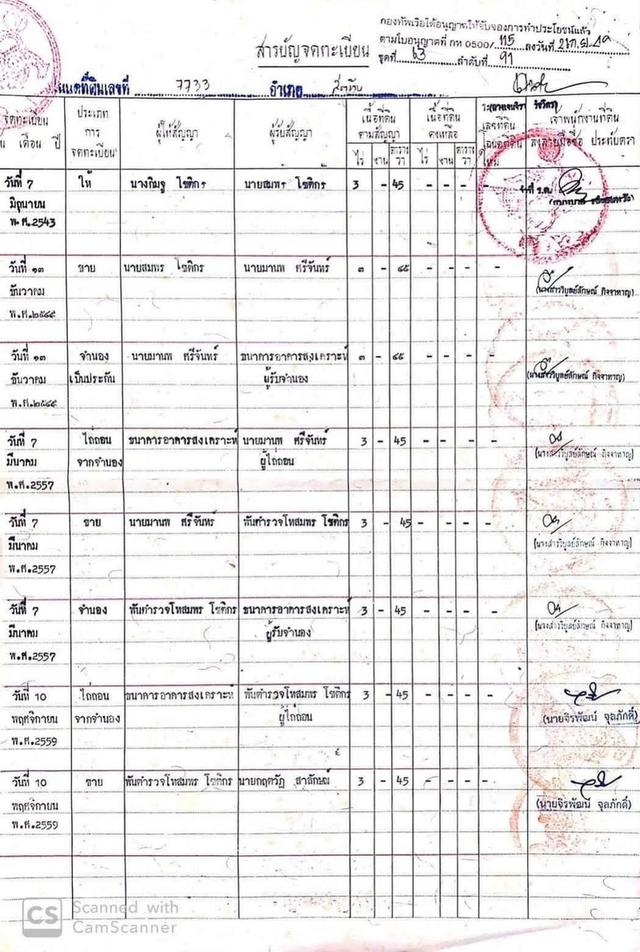 กองทัพเรือให้อนุญาตให้จับจองการทำประโยชน์แล้ว
ตามใบอนุญาตที่ กห 0500/ 115 ลงวันที่
ชุดที่ 63 ลำดับที่ 91
สารบัญจดทะเบียน
เลขที่ 7733 อำเภอ สัตหีบ
จดทะเบียน ประเภท ผู้ให้สัญญา ผู้รับสัญญา เนื้อที่ดิน เนื้อที่ดิน เจ้าพนักงานที่ดิน
เดือน ปี การ ตามสัญญา คงเหลือ เลขที่ดิน ลงลายมือชื่อ ประทับตรา
จดทะเบียน ไร่ งาน ตารางวา ไร่ งาน ตารางวา ใหม่
วันที่ 7 ให้ นางกิมจู โชติกร นายสมพร โชติกร 3 - 45 - - - -
มิถุนายน
พ.ศ.2543
วันที่ ๑๓ ขาย นายสมพร โชติกร นายมานพ ศรีจันทร์ ๓ - ๔๕ - - - -
ธันวาคม (นางสาววิบูลย์ลักษณ์ กิจจาหาญ)
พ.ศ.๒๕๔๕
วันที่ ๑๓ จำนอง นายมานพ ศรีจันทร์ ธนาคารอาคารสงเคราะห์ ๓ - ๔๕ - - - -
ธันวาคม เป็นประกัน ผู้รับจำนอง (นางสาววิบูลย์ลักษณ์ กิจจาหาญ)
พ.ศ.๒๕๔๕
วันที่ 7 ไถ่ถอน ธนาคารอาคารสงเคราะห์ นายมานพ ศรีจันทร์ 3 - 45 - - - -
มีนาคม จากจำนอง ผู้ไถ่ถอน (นางสาววิบูลย์ลักษณ์ กิจจาหาญ)
พ.ศ.2557
วันที่ 7 ขาย นายมานพ ศรีจันทร์ พันตำรวจโทสมพร โชติกร 3 - 45 - - - -
มีนาคม (นางสาววิบูลย์ลักษณ์ กิจจาหาญ)
พ.ศ.2557
วันที่ 7 จำนอง พันตำรวจโทสมพร โชติกร ธนาคารอาคารสงเคราะห์ 3 - 45 - - - -
มีนาคม ผู้รับจำนอง (นางสาววิบูลย์ลักษณ์ กิจจาหาญ)
พ.ศ.2557
วันที่ 10 ไถ่ถอน ธนาคารอาคารสงเคราะห์ พันตำรวจโทสมพร โชติกร 3 - 45 - - - -
พฤศจิกายน จากจำนอง ผู้ไถ่ถอน (นายจิรพัฒน์ จุลภักดิ์)
พ.ศ.2559
วันที่ 10 ขาย พันตำรวจโทสมพร โชติกร นายกฤตวัฏ สาลักษณ์ 3 - 45 - - - -
พฤศจิกายน (นายจิรพัฒน์ จุลภักดิ์)
พ.ศ.2559
CS Scanned with
CamScanner